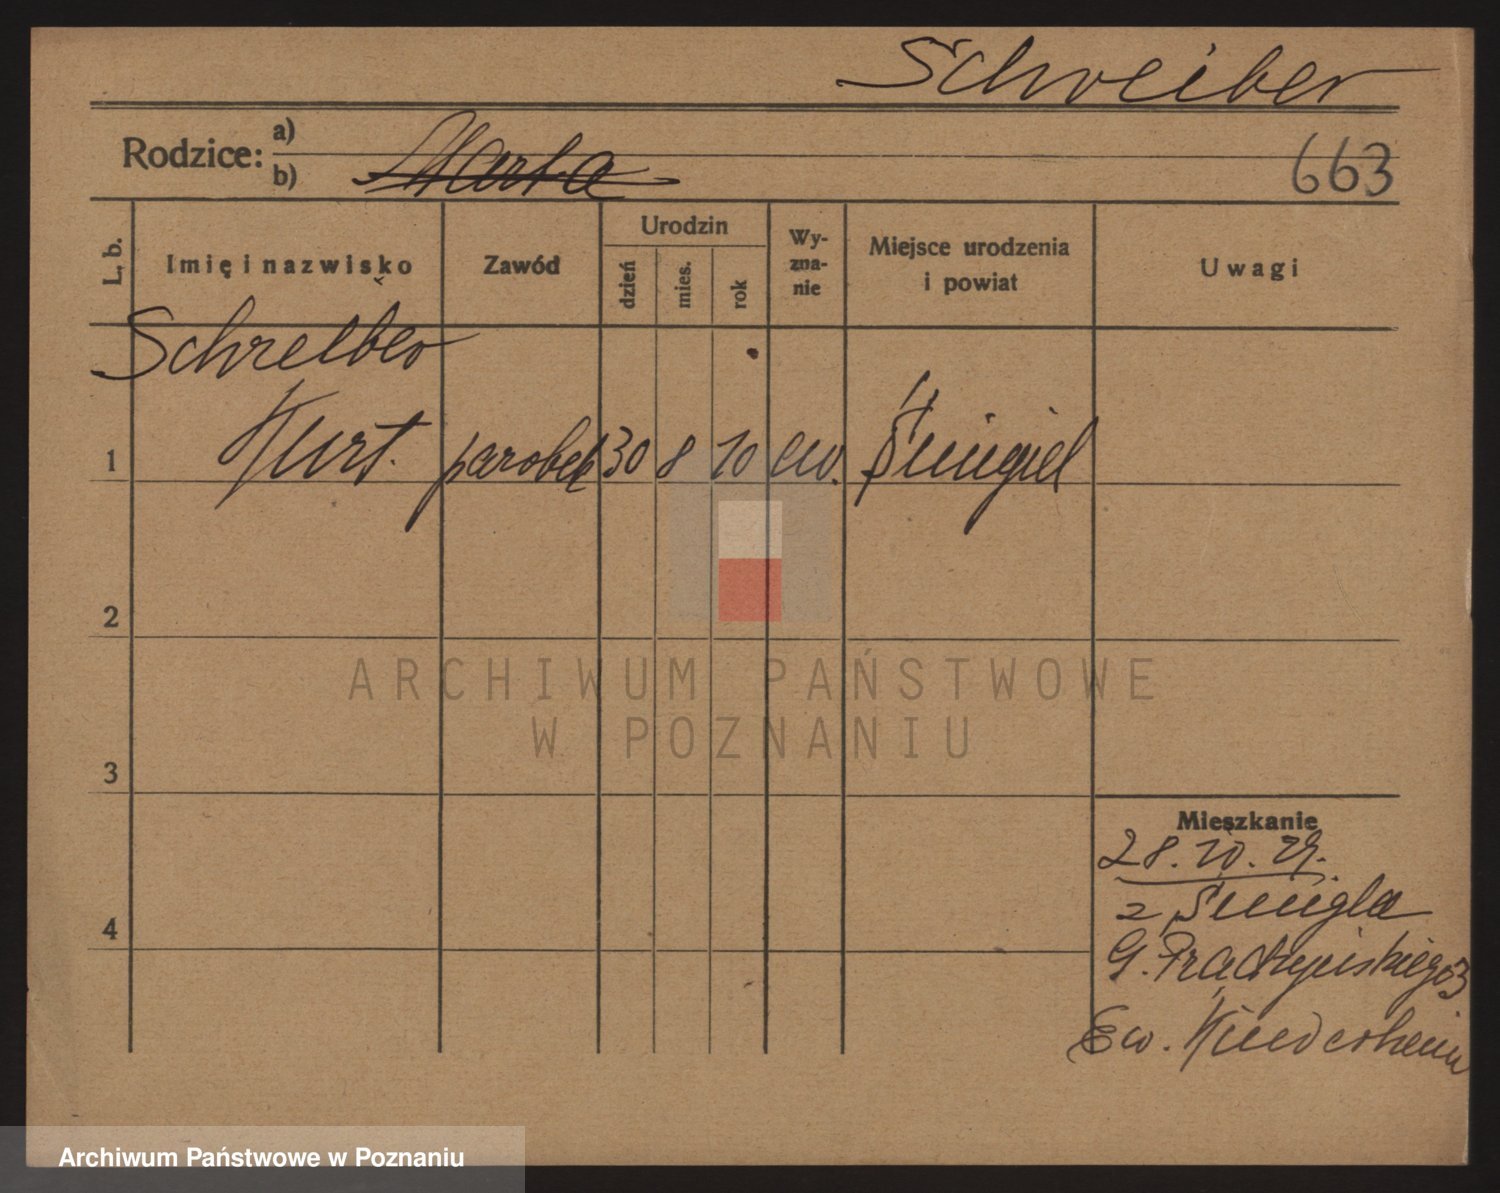 Schreiber
Rodzice:
a)
b) Marta
663
L. b.
Imię i nazwisko
Zawód
Urodzin
dzień
mies.
rok
Wy-
zna-
nie
Miejsce urodzenia
i powiat
Uwagi
Schreiber
1 Kurt. parobek 30 8 10 ew. Śmigiel
2
3
4
Mieszkanie
28.10.29.
z Śmigla
G. Prądzyńskiego 3
Ew. Kinderheim
ARCHIWUM PAŃSTWOWE
W POZNANIU
Archiwum Państwowe w Poznaniu